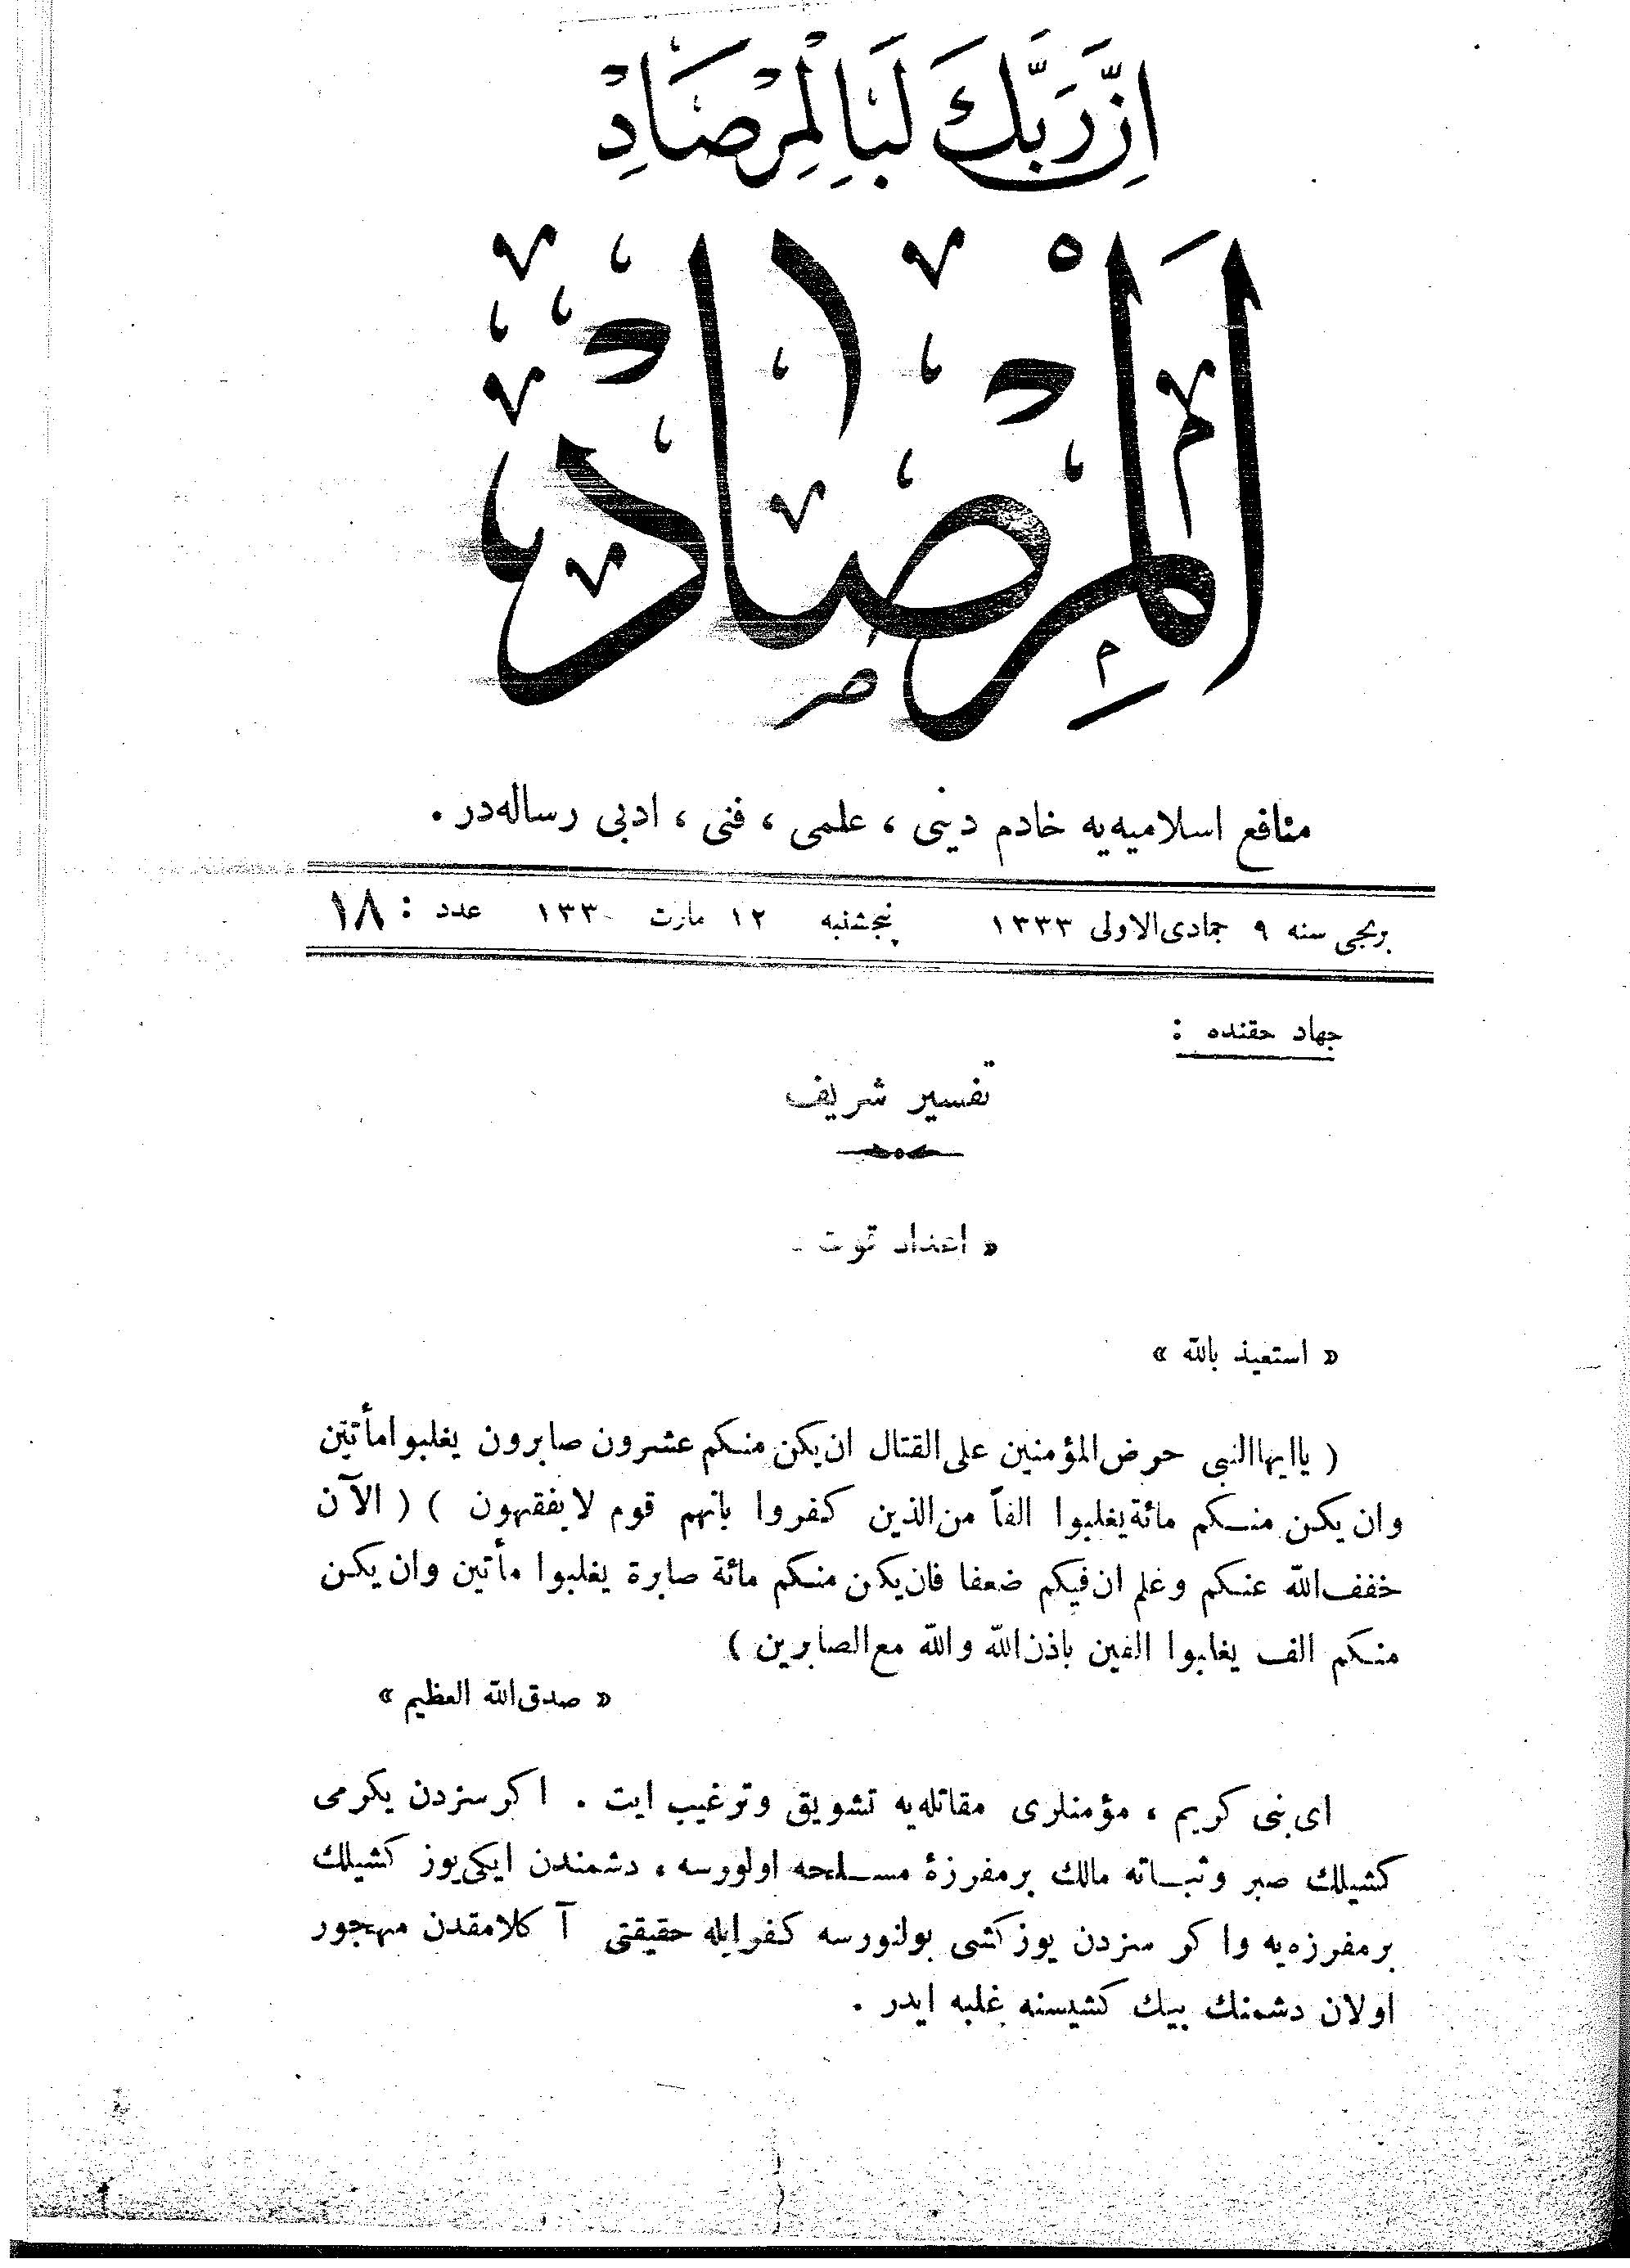 اِنَّ رَبَّكَ لَبَا لْمِرْصَادِ
اَلْمِرْصَادْ
منافع اسلاميه‌يه خادم دينى ، علمى ، فنى ، ادبى رساله‌در .
برنجى سنه ٩ جمادى‌الاولى ١٣٣٣ پنجشنبه ١٢ مارت ١٣٣٠ عدد : ١٨
جهاد حقنده :
تفسير شريف
« اعداد قوت »
« استعيذ بالله »
( ياايهاالنبى حرض‌المؤمنين على‌القتال ان‌يكن منكم عشرون صابرون يغلبوا مأتين
وان يكن منكم مائة يغلبوا الفاً من‌الذين كفروا بانهم قوم لايفقهون ) ( الآن
خفف‌الله عنكم وعلم ان‌فيكم ضعفا فان‌يكن منكم مائة صابرة يغلبوا مأتين وان يكن
منكم الف يغلبوا الفين باذن‌الله والله مع‌الصابرين )
« صدق‌الله العظيم »
اى‌نبى كريم ، مؤمنلرى مقاتله‌يه تشويق وترغيب ايت . اكر سزدن يكرمى
كشيلك صبر وثباته مالك برمفرزهٔ مسلحه اولورسه ، دشمندن ايكى‌يوز كشيلك
برمفرزه‌يه واكر سزدن يوز كشى بولنورسه كفرايله حقيقتى آ كلامقدن مهجور
اولان دشمنك بيك كشيسنه غلبه ايدر .